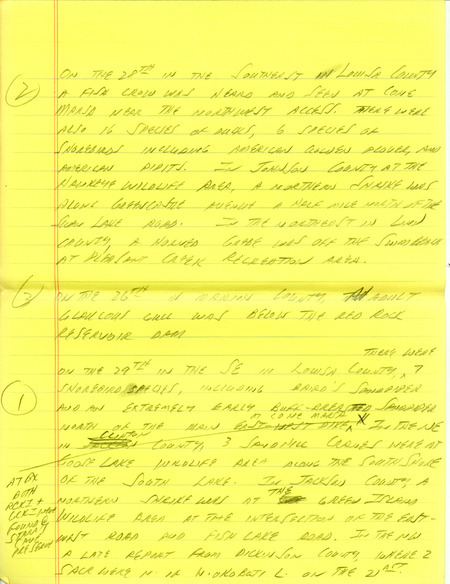 ② ON THE 28TH IN THE SOUTHEAST IN LOUISA COUNTY
A FISH CROW WAS HEARD AND SEEN AT CONE
MARSH NEAR THE NORTHWEST ACCESS. THERE WERE
ALSO 16 SPECIES OF DUCKS, 6 SPECIES OF
SHOREBIRDS INCLUDING AMERICAN GOLDEN PLOVER, AND
AMERICAN PIPITS. IN JOHNSON COUNTY AT THE
HAWKEYE WILDLIFE AREA, A NORTHERN SHRIKE WAS
ALONG GREENCASTLE AVENUE A HALF MILE NORTH OF THE
SWAN LAKE ROAD. IN THE NORTHEAST IN LINN
COUNTY, A HORNED GREBE WAS OFF THE SWIM BEACH
AT PLEASANT CREEK RECREATION AREA.
③ ON THE 26TH IN MARION COUNTY, AN ADULT
GLAUCOUS GULL WAS BELOW THE RED ROCK
RESERVOIR DAM
① ON THE 29TH IN THE SE IN LOUISA COUNTY, THERE WERE 7
SHOREBIRD SPECIES, INCLUDING BAIRD'S SANDPIPER
AND AN EXTREMELY EARLY BUFF-BREASTED SANDPIPER
NORTH OF THE MAIN AT CONE MARSH. IN THE NE
IN CLINTON COUNTY, 3 SANDHILL CRANES WERE AT
GOOSE LAKE WILDLIFE AREA ALONG THE SOUTH SHORE
OF THE SOUTH LAKE. IN JACKSON COUNTY A
NORTHERN SHRIKE WAS AT THE GREEN ISLAND
WILDLIFE AREA AT THE INTERSECTION OF THE EAST-
WEST ROAD AND FISH LAKE ROAD. IN THE NW
A LATE REPORT FROM DICKINSON COUNTY, WHERE 2
SACR WERE N. OF W. OKOBOJI L. ON THE 21ST
BOTH